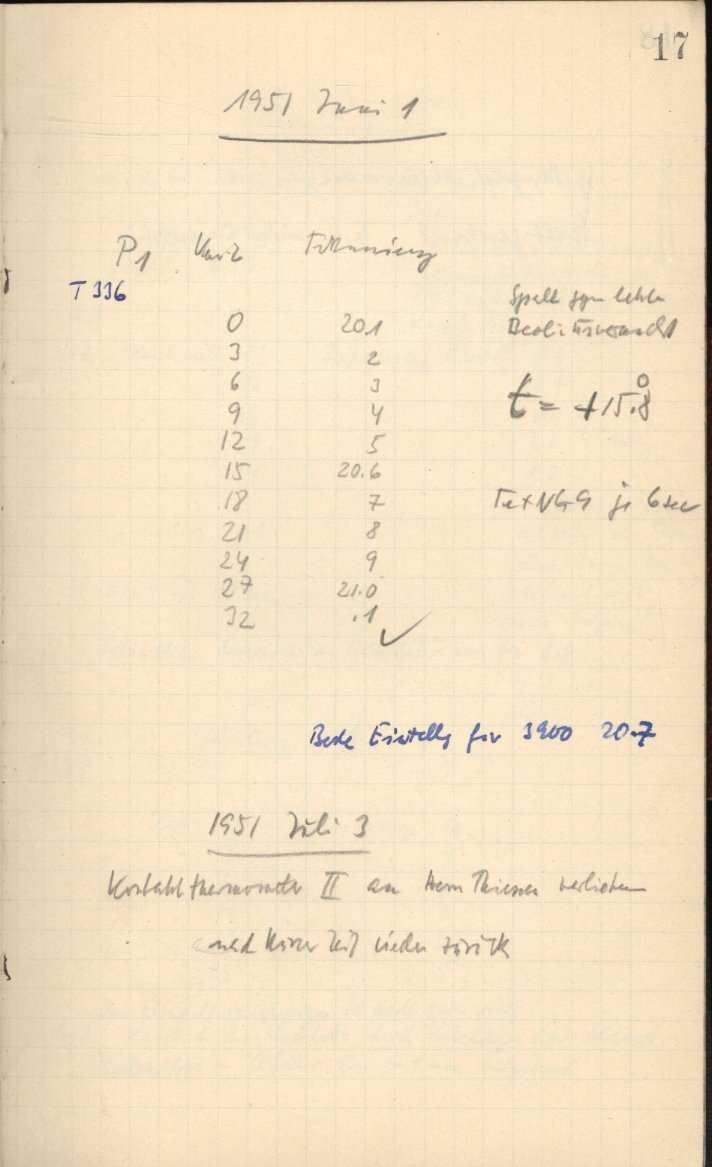 17
1951 Juni 1
P1 Fokussierung
T 336
0 20.1
3 2
6 3
9 4
12 5
15 20.6
18 7
21 8
24 9
27 21.0
32 .1 ✓
Spalt letzte
t = +15.8°
je 6 sec
Beste Einstellg für 3900 20.7
1951 Juli 3
Kontaktthermometer II an Herrn Thiessen verliehen
nach kurzer Zeit wieder zurück